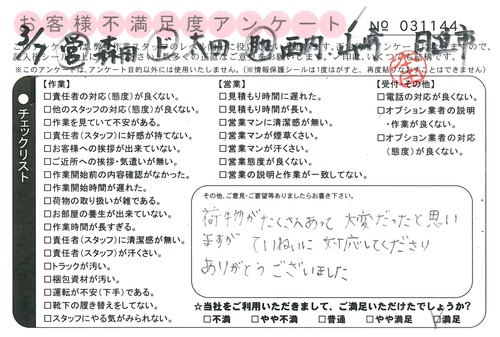 お客様不満足度アンケート
№ 031144
3/7 営 森田 上 吉田 助 西田・山崎 日進市
※このアンケートは、アンケート目的以外には使用いたしません。(※情報保護シールは1度はがすと、再度貼りなおすことはできません)
チェックリスト
【作業】
□責任者の対応(態度)が良くない。
□他のスタッフの対応(態度)が良くない。
□作業を見ていて不安がある。
□責任者(スタッフ)に好感が持てない。
□お客様への挨拶が出来ていない。
□ご近所への挨拶・気遣いが無い。
□作業開始前の内容確認がなかった。
□作業開始時間が遅れた。
□荷物の取り扱いが雑である。
□お部屋の養生が出来ていない。
□作業時間が長すぎる。
□責任者(スタッフ)に清潔感が無い。
□責任者(スタッフ)が汗くさい。
□トラックが汚い。
□梱包資材が汚い。
□運転が不安(下手)である。
□靴下の履き替えをしてない。
□スタッフにやる気がみられない。
【営業】
□見積もり時間に遅れた。
□見積もり時間が長い。
□営業マンに清潔感が無い。
□営業マンが煙草くさい。
□営業マンが汗くさい。
□営業態度が良くない。
□営業の説明と作業が一致してない。
【受付・その他】
□電話の対応が良くない。
□オプション業者の説明
・作業が良くない。
□オプション業者の対応
(態度)が良くない。
その他、ご意見・ご要望等ありましたらお書き下さい。
荷物がたくさんあって 大変だったと思い
ますが ていねいに 対応してくださり
ありがとうございました
☆当社をご利用いただきまして、ご満足いただけたでしょうか?
□不満 □やや不満 □普通 □やや満足 □満足